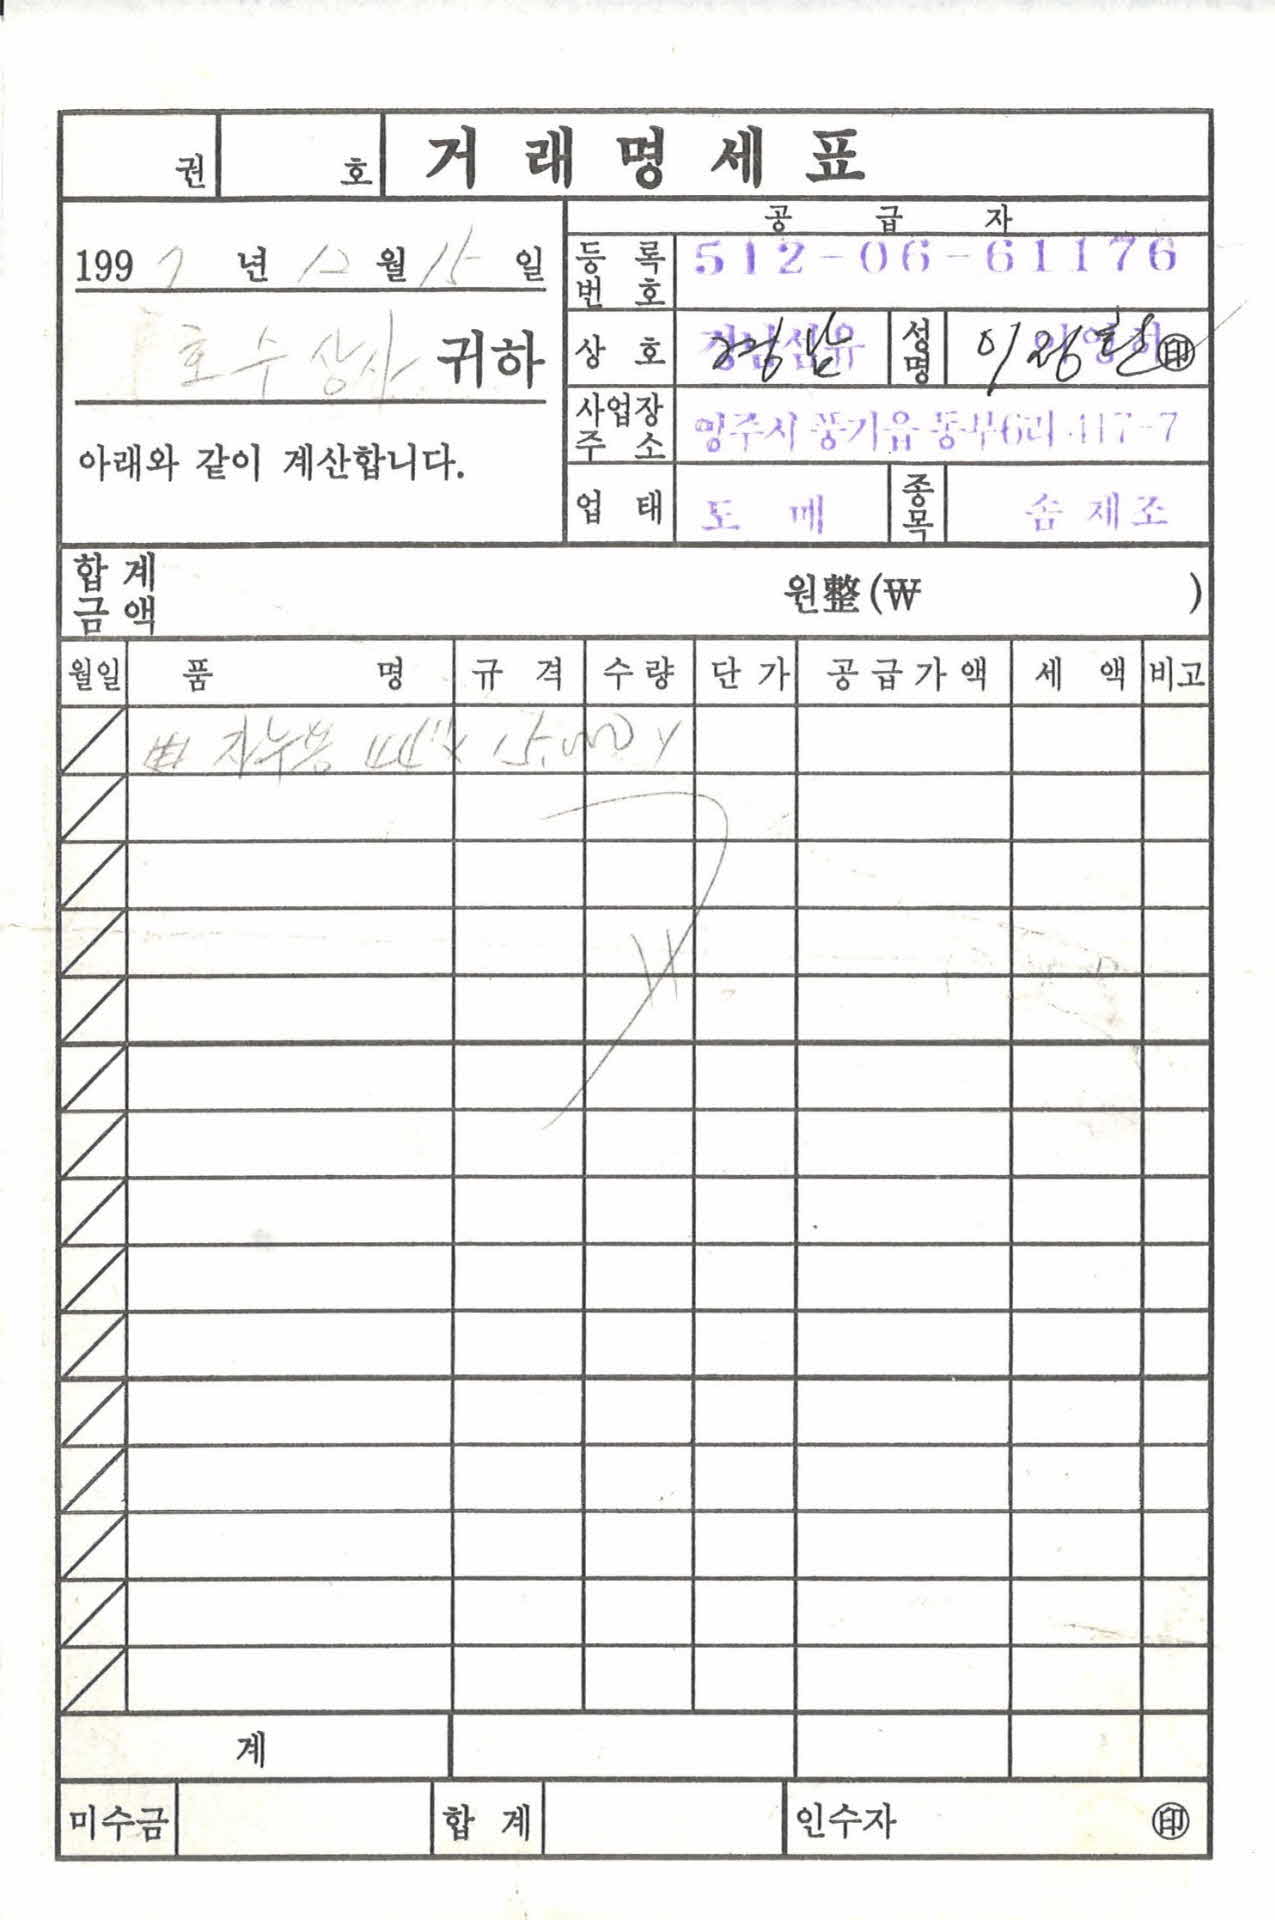 권 호 거래명세표
공급자
1997년 12월 15일
등록번호 512-06-61176
호수상사 귀하
상호 경남섬유 경남 성명 이 印
사업장주소 영주시 풍기읍 동부6리 417-7
아래와 같이 계산합니다.
업태 도매 종목 솜제조
합계금액 원整(₩ )
월일 품명 규격 수량 단가 공급가액 세액 비고
자누용 44"x 15,000y
계
미수금 합계 인수자 印